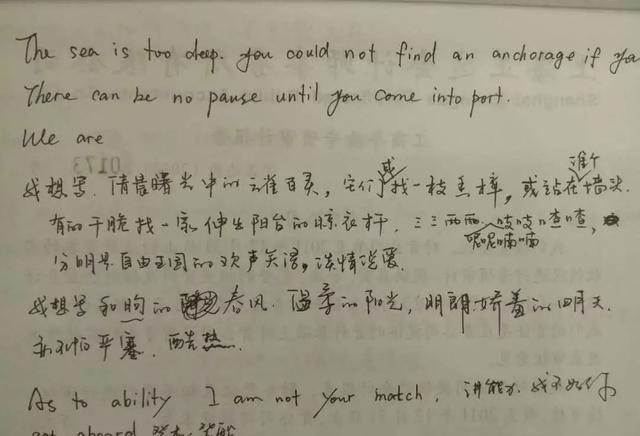 The sea is too deep. you could not find an anchorage if you
There can be no pause until you come into port.
We are
我想写. 清晨曙光中的云雀百灵, 它们或找一枝丢掉, 或站在谁个墙头.
有的干脆找一家伸出阳台的晾衣杆, 三三两两, 吱吱喳喳, 呢呢喃喃
分明是自由王国的欢声笑语, 谈情说爱.
我想写和煦的春风. 温柔的阳光, 明朗娇羞的四月天.
亦不怕严寒. 酷热.
As to ability I am not your match, 讲能力. 我不如你
get aboard 登船